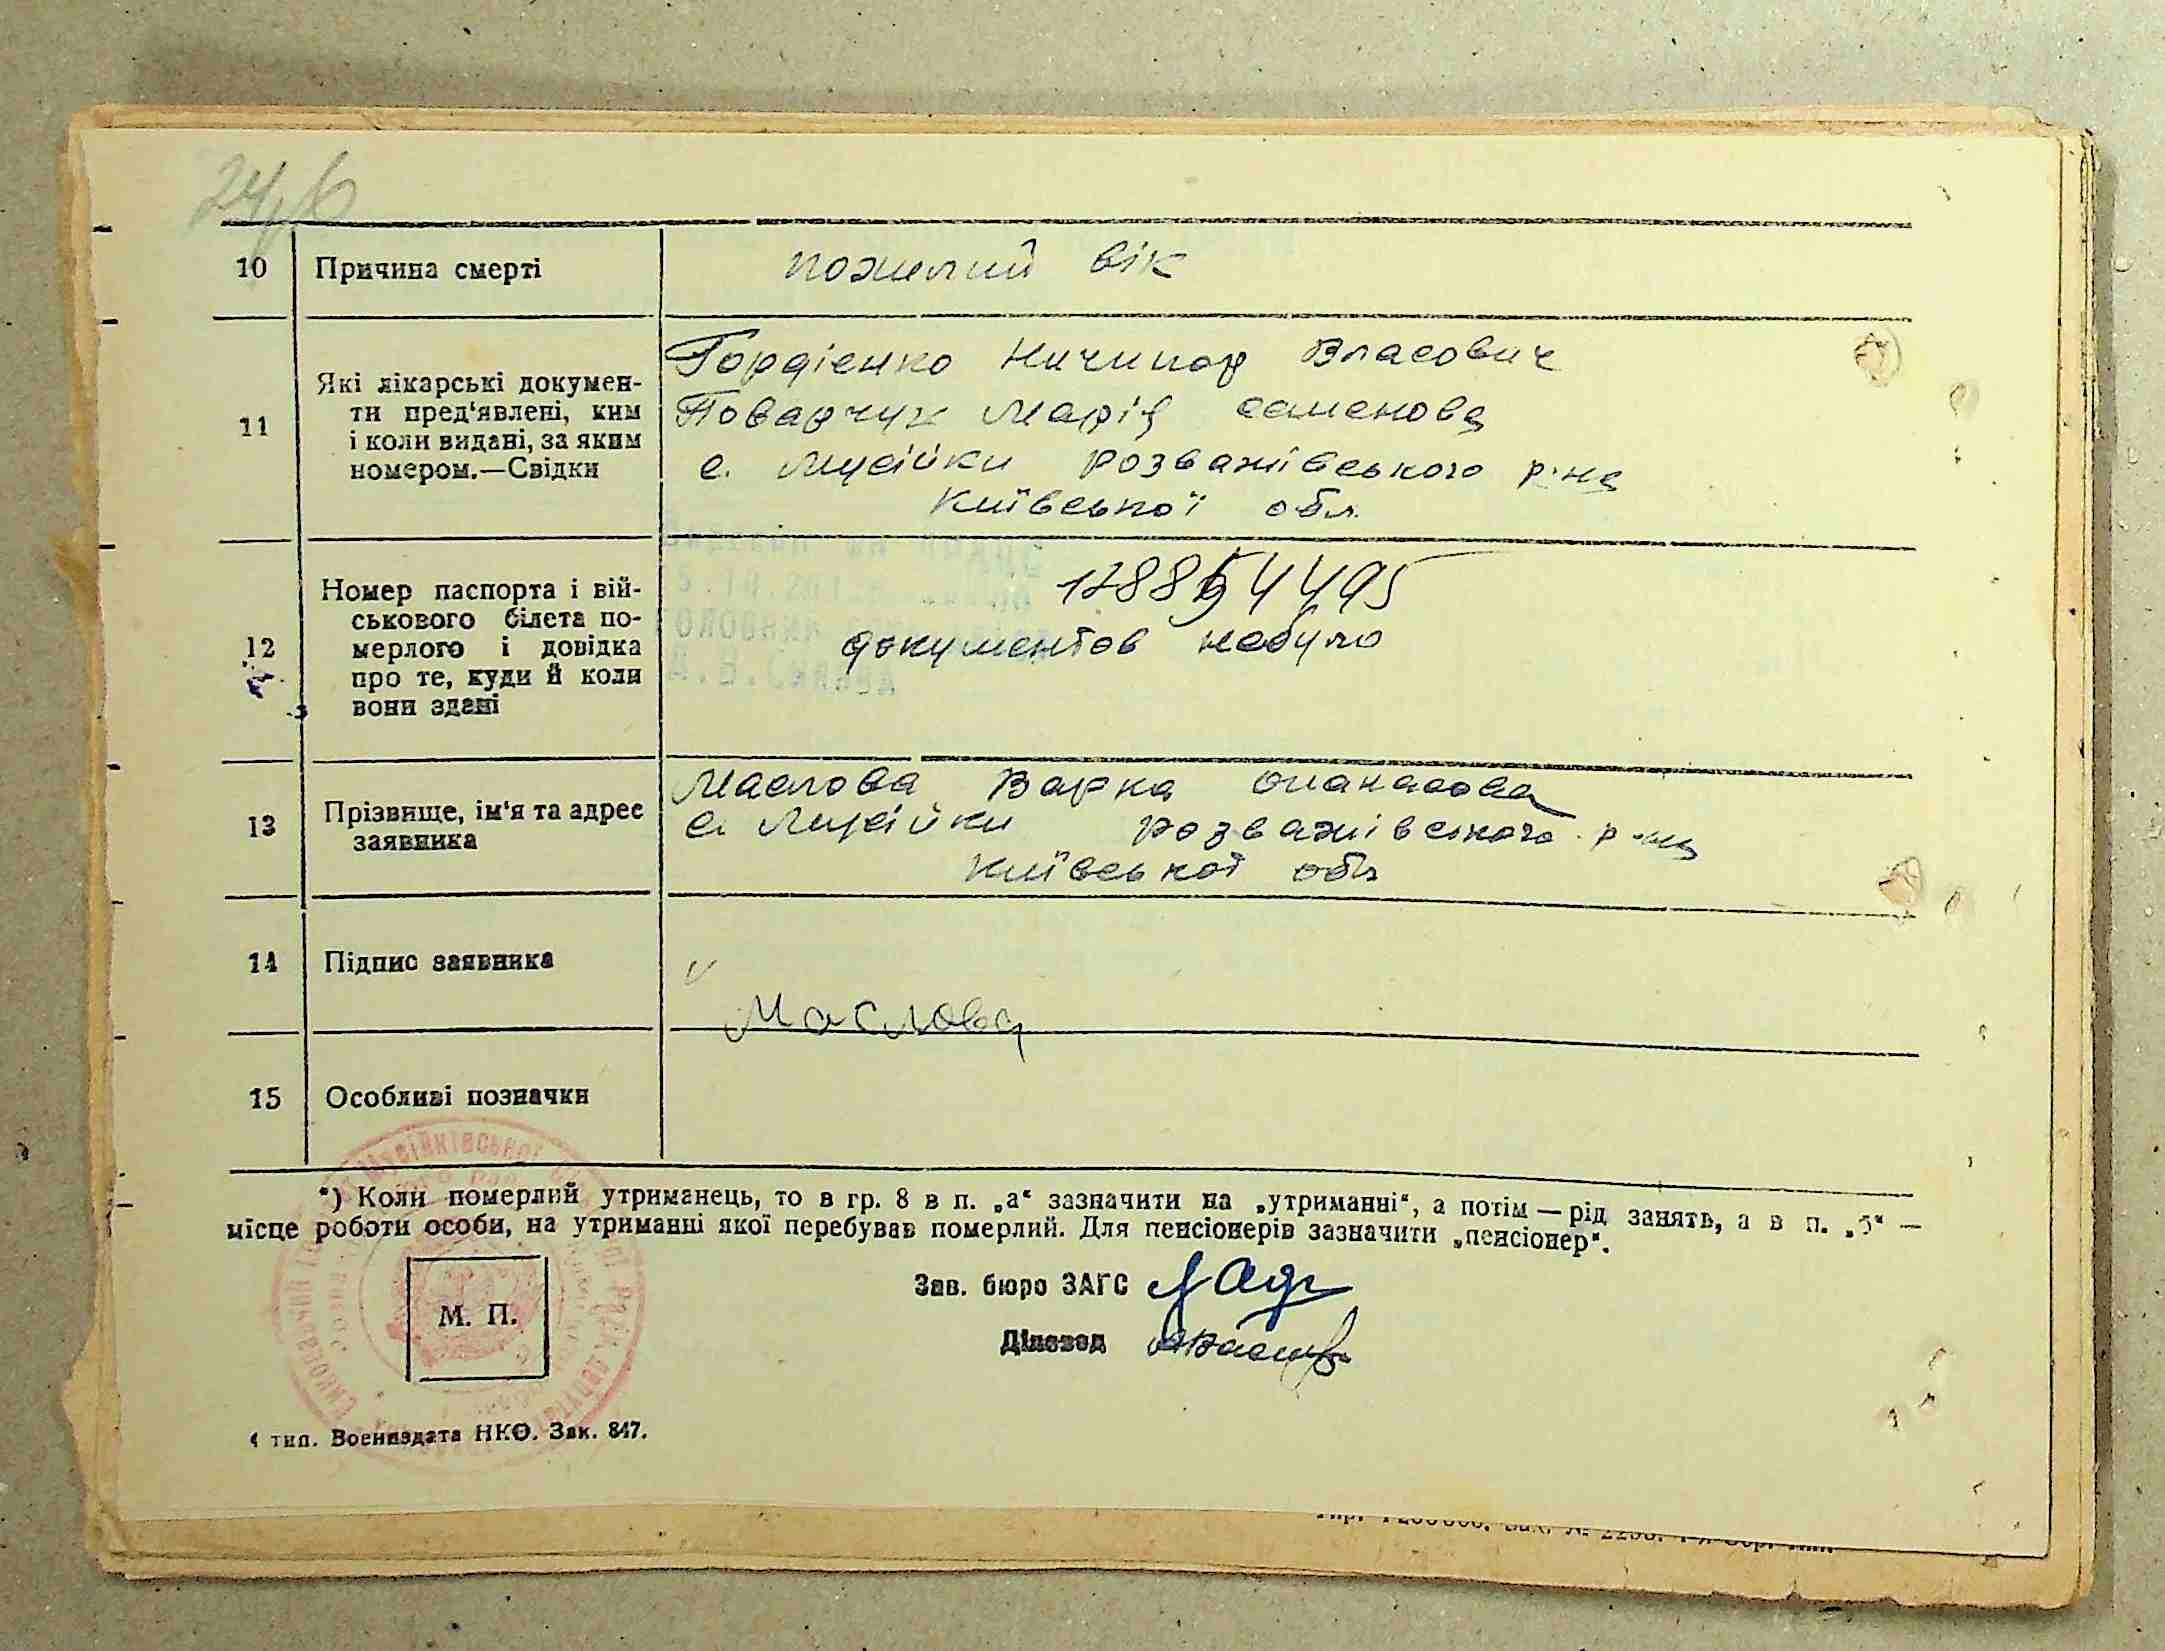 10 Причина смерті
пожилий вік
11 Які лікарські докумен-
ти пред'явлені, ким
і коли видані, за яким
номером.—Свідки
Гордієнко Ничипор Власович
Поварчук Марія семенова
с. Мусійки розважівського р-на
Київської обл.
12 Номер паспорта і вій-
ськового білета по-
мерлого і довідка
про те, куди й коли
вони здані
документов небуло
13 Прізвище, ім'я та адрес
заявника
Маслова Варка опанасова
с. Мусійки розважівського р-на
Київської обл
14 Підпис заявника
Маслова
15 Особливі позначки
*) Коли померлий утриманець, то в гр. 8 в п. „а“ зазначити на „утриманні“, а потім — рід занять, а в п. „б“ —
місце роботи особи, на утриманні якої перебував померлий. Для пенсіонерів зазначити „пенсіонер“.
М. П.
Зав. бюро ЗАГС
Діловод
4 тип. Воениздата НКО. Зак. 847.